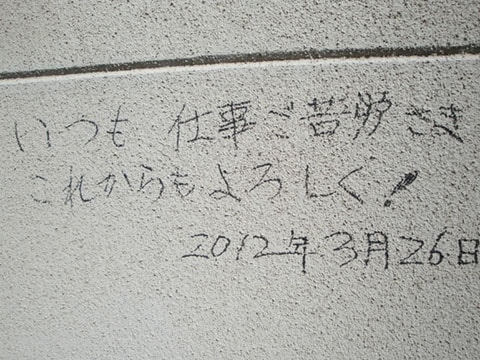 いつも 仕事ご苦労さま
これからもよろしく!
2012年3月26日